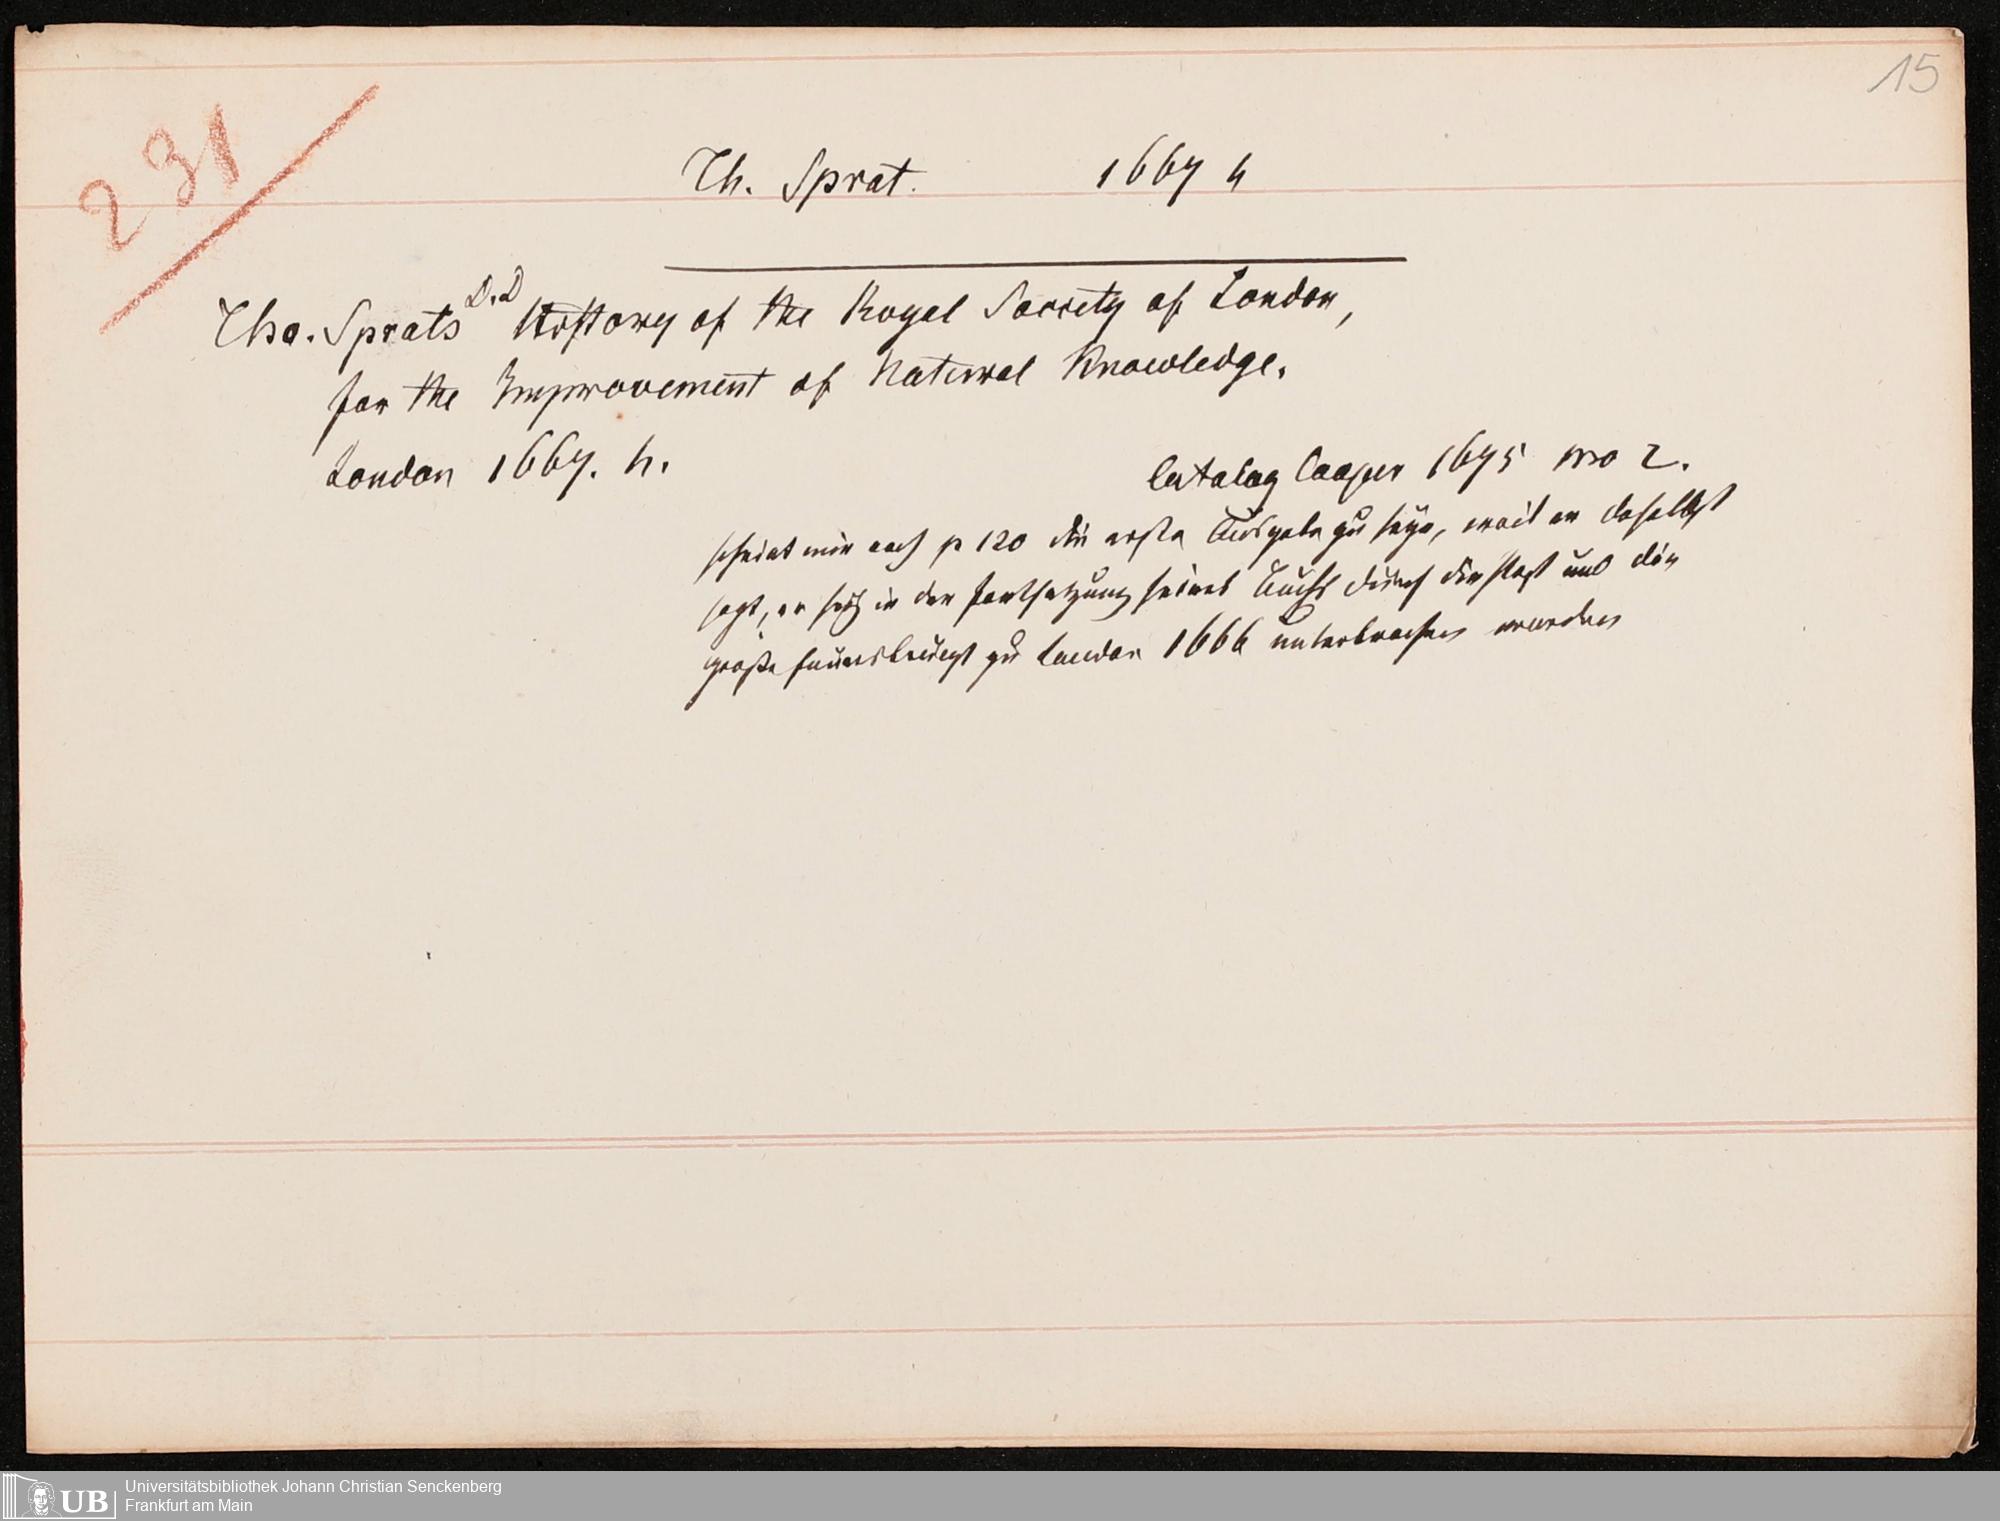 15
231
Th. Sprat. 1667 4
Tho. Sprats D.D History of the Royal Society of London,
for the Improvement of Natural Knowledge.
London 1667. 4.
Catalog Cooper 1675 no 2.
scheint mir nach p 120 die erste Ausgabe zu seyn, weil er daselbst
sagt, er sey in der Fortsetzung seines Buchs durch die Pest und die
große Feuersbrunst zu London 1666 unterbrochen worden
Universitätsbibliothek Johann Christian Senckenberg
Frankfurt am Main
UB